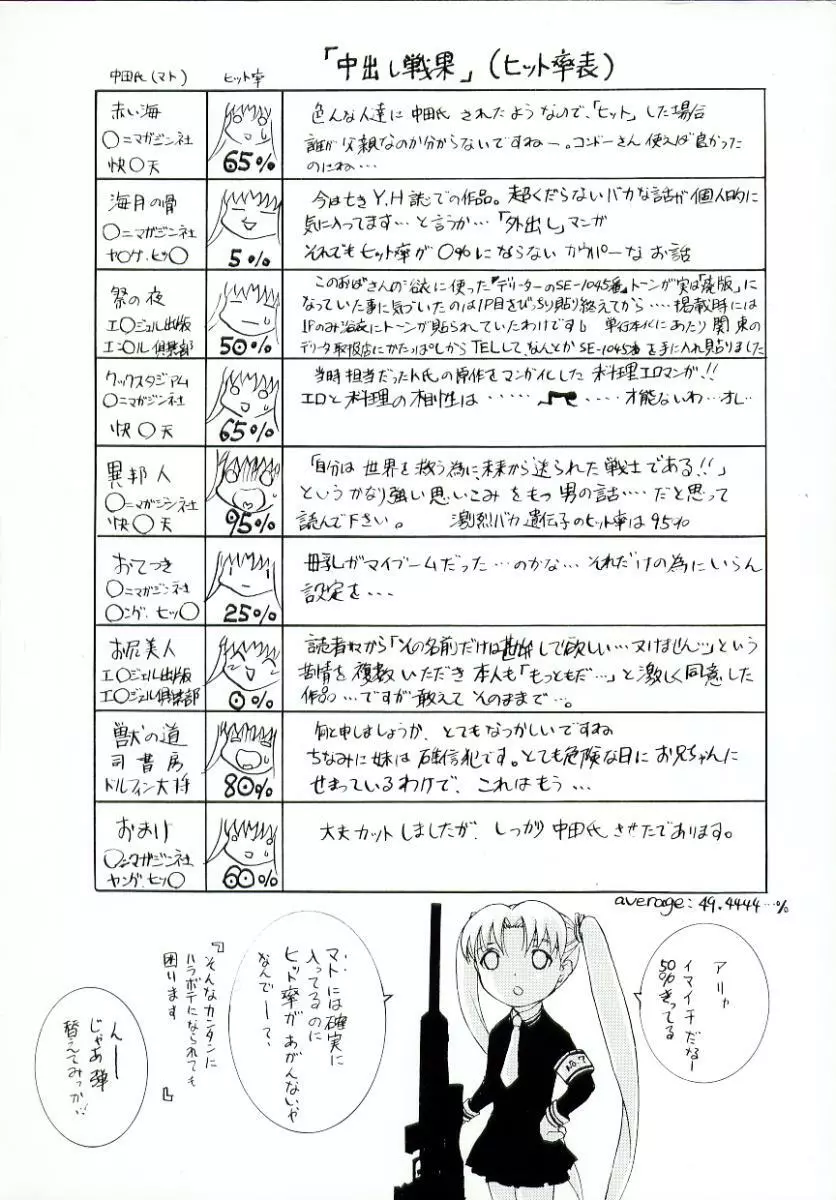 「中出し戦果」(ヒット率表)
中田氏(マト) ヒット率
赤い海
○ニマガジン社
快○天
65%
色んな人達に中田氏されたようなので、「ヒット」した場合
誰が父親なのか分からないですねー。コンドーさん使えば良かった
のにね…
海月の骨
○ニマガジン社
ヤ○グ・ヒッ○
5%
今は亡きY.H誌での作品。超くだらないバカな話が個人的に
気に入ってます…と言うか…「外出し」マンガ
それでもヒット率が0%にならないカウパーなお話
祭の夜
エ○ジェル出版
エン○ル倶楽部
50%
このおばさんの浴衣に使った『デリーターのSE-1045番』トーンが実は「廃版」に
なっていた事に気づいたのは1P目をびっちり貼り終えてから‥‥掲載時には
1Pのみ浴衣にトーンが貼られていたわけです 単行本化にあたり関東の
デリータ取扱店にかたっぱしからTELして、なんとかSE-1045番を手に入れ貼りました
クックスタジアム
○ニマガジン社
快○天
65%
当時担当だったト氏の原作をマンガ化した料理エロマンガ!!
エロと料理の相性は…… ‥‥才能ないわ…オレ…
異邦人
○ニマガジン社
快○天
95%
「自分は世界を救う為に、未来から送られた戦士である!!」
というかなり強い思いこみをもつ男の話‥‥だと思って
読んで下さい。 激烈バカ遺伝子のヒット率は95%
おてつき
○ニマガジン社
○ング・ヒッ○
25%
母乳がマイブームだった…のかな…それだけの為にいらん
設定を…
お尻美人
エ○ジェル出版
エ○ジェル倶楽部
0%
読者様から「その名前だけは勘弁して欲しい…ヌけません…」という
苦情を複数いただき本人も「もっともだ…」と激しく同意した
作品…ですが敢えてそのままで…。
獣の道
司書房
ドルフィン大将
80%
何と申しましょうか、とてもなつかしいですね
ちなみに妹は確信犯です。とても危険な日にお兄ちゃんに
せまっているわけで、これはもう…
おまけ
○ニマガジン社
ヤング・ヒッ○
60%
大丈カットしましたが、しっかり中田氏させたであります。
average: 49.4444…%
アリャ
イマイチだなー
50%きってる
マトには確実に
入ってるのに
ヒット率が
あがんないや
なんでー?、
『そんなカンタンに
ハラボテになられても
困ります』
んー
じゃあ弾
替えてみっか…